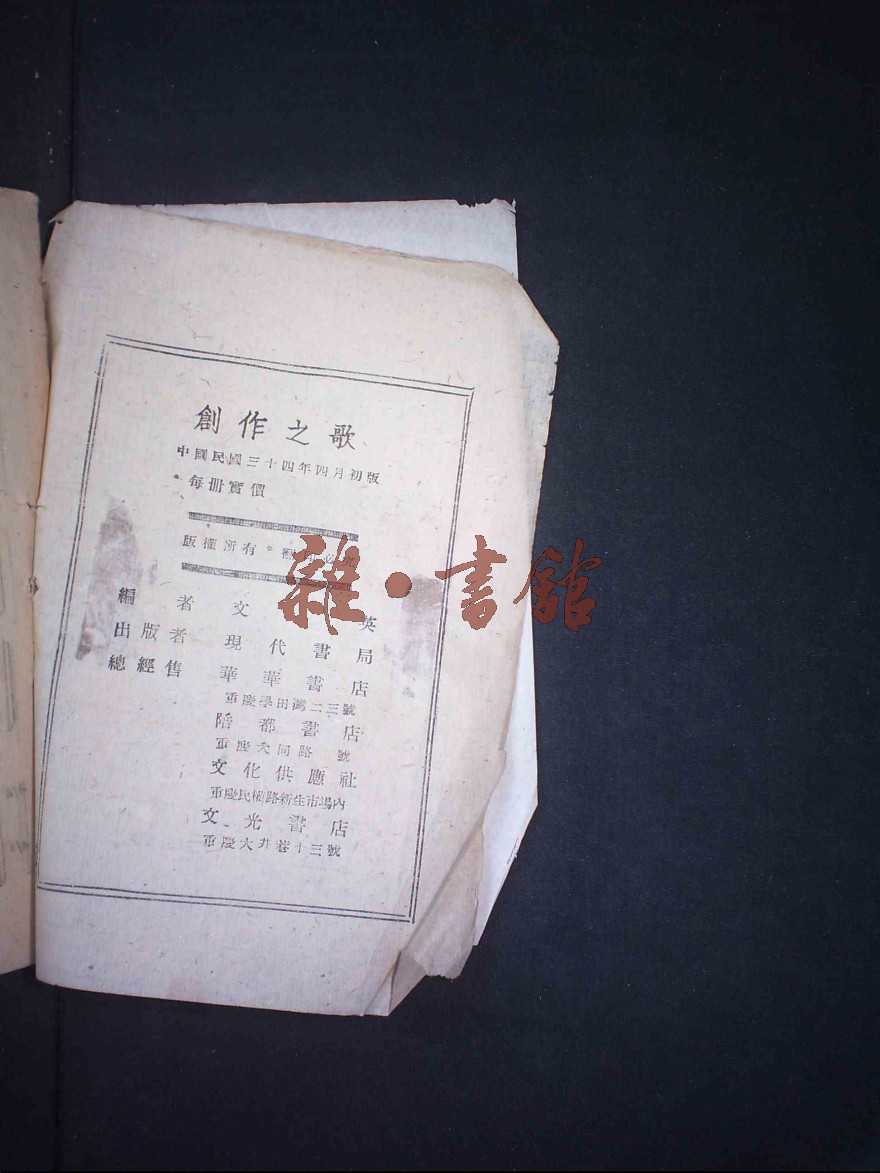 創作之歌
中國民國三十四年四月初版
每册實價
版權所有
雜·書館
編者 文英
出版者 現代書局
總經售 華華書店
重慶學田灣二三號
陪都書店
重慶大同路 號
文化供應社
重慶民權路新生市場內
文光書店
重慶大井巷十三號